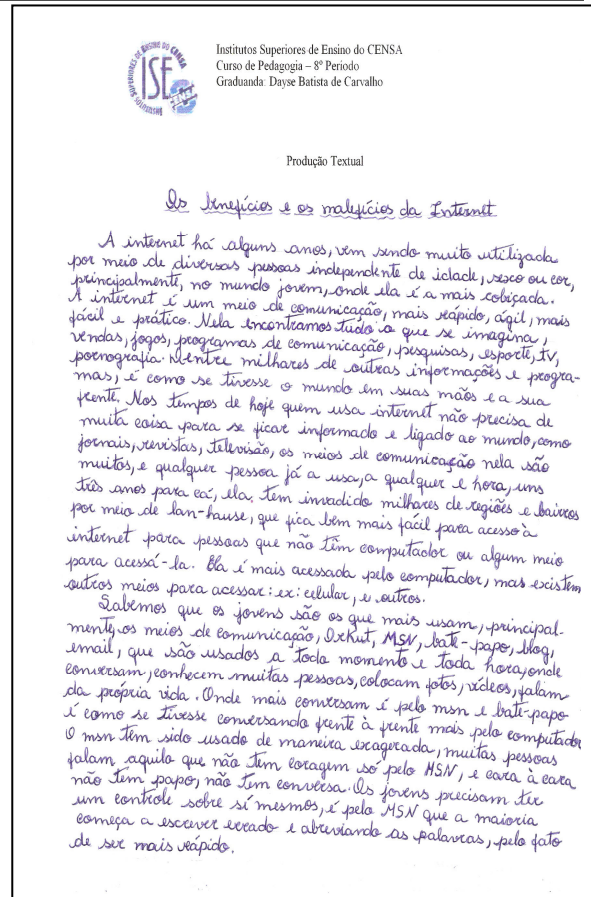 INSTITUTOS SUPERIORES DE ENSINO DO CENSA
ISE
CENSA
Institutos Superiores de Ensino do CENSA
Curso de Pedagogia – 8º Periodo
Graduanda: Dayse Batista de Carvalho
Produção Textual
Os benefícios e os malefícios da Internet
A internet há alguns anos, vem sendo muito utilizada
por meio de diversas pessoas independente de idade, sexo ou cor,
principalmente, no mundo jovem, onde ela é a mais cobiçada.
A internet é um meio de comunicação, mais rápido, ágil, mais
fácil e prático. Nela encontramos tudo o que se imagina,
vendas, jogos, programas de comunicação, pesquisas, esporte, tv,
pornografia. Dentre milhares de outras informações e progra-
mas, é como se tivesse o mundo em suas mãos e a sua
frente. Nos tempos de hoje quem usa internet não precisa de
muita coisa para se ficar informado e ligado ao mundo, como
jornais, revistas, televisão, os meios de comunicação nela são
muitos, e qualquer pessoa já a usa, a qualquer e hora, uns
três anos para cá, ela, tem invadido milhares de regiões e bairros
por meio de lan-hause, que fica bem mais fácil para acesso à
internet para pessoas que não têm computador ou algum meio
para acessá-la. Ela é mais acessada pelo computador, mas existem
outros meios para acessar: ex: celular, e outros.
Sabemos que os jovens são os que mais usam, principal-
mente, os meios de comunicação, Orkut, MSN, bate-papo, blog,
email, que são usados a todo momento e toda hora, onde
conversam, conhecem muitas pessoas, colocam fotos, vídeos, falam
da própria vida. Onde mais conversam é pelo msn e bate-papo
é como se tivesse conversando frente à frente mais pelo computador
O msn tem sido usado de maneira exagerada, muitas pessoas
falam aquilo que não tem coragem só pelo MSN, e cara à cara
não tem papo, não tem conversa. Os jovens precisam ter
um controle sobre sí mesmos, é pelo MSN que a maioria
começa a escrever errado e abreviando as palavras, pelo fato
de ser mais rápido.